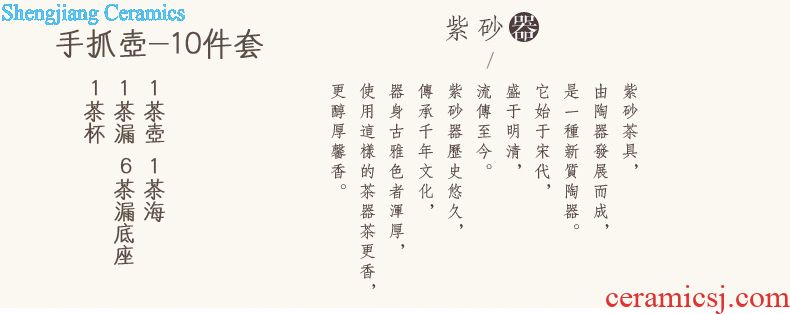 Shengjiang Ceramics
手抓壺-10件套
1茶壺 1茶海
1茶漏 6茶漏底座
1茶杯
紫砂器
/
紫砂茶具，
由陶器發展而成，
是一種新質陶器。
它始于宋代，
盛于明清，
流傳至今。
紫砂器歷史悠久，
傳承千年文化，
器身古雅色者渾厚，
使用這樣的茶器茶更香，
更醇厚馨香。
ceramicsj.com